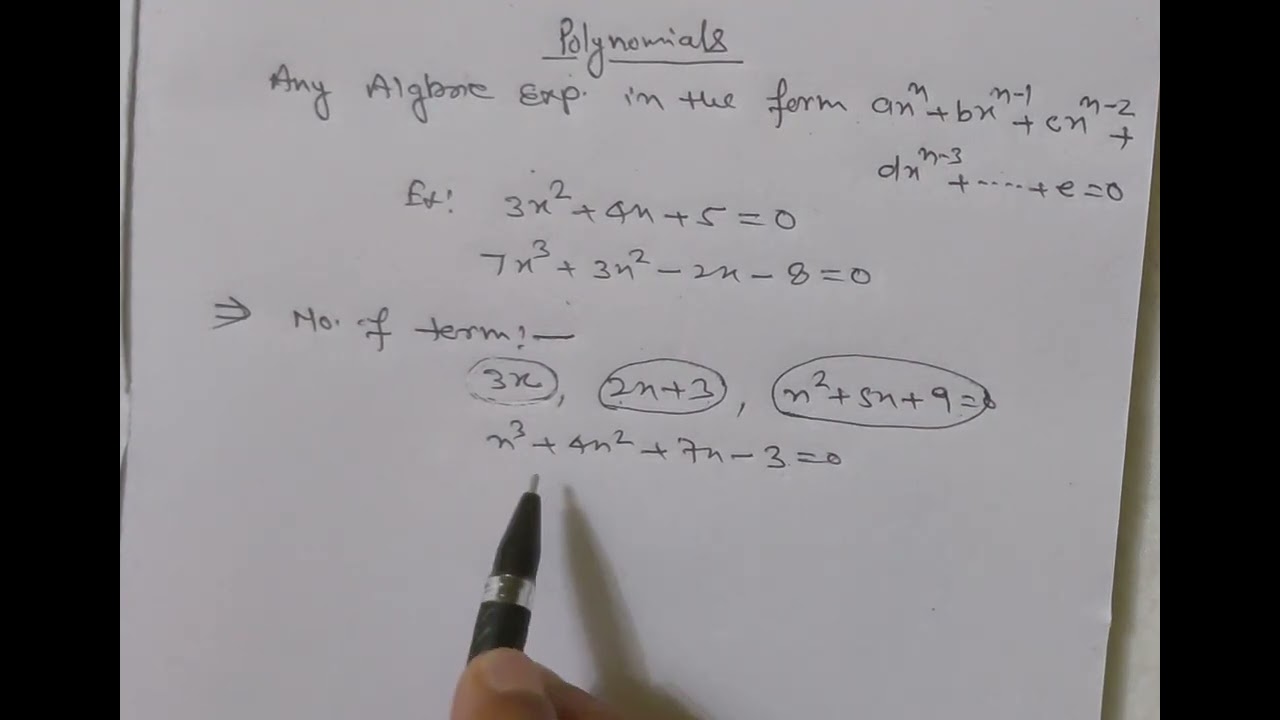 Polynomials
Any Algbric Exp. in the form axⁿ+bxⁿ⁻¹+cxⁿ⁻²+
dxⁿ⁻³+.....+e=0
Ex! 3x²+4x+5=0
7x³+3x²-2x-8=0
⇒ No. of term!-
3x, 2x+3, x²+5x+9=0
x³+4x²+7x-3=0